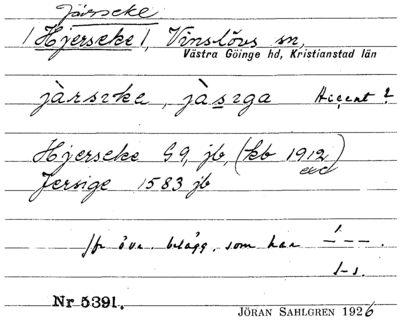 järseke
/Hjerseke/, Vinslövs sn,
Västra Göinge hd, Kristianstad län
jàrseke, jàsega Accent?
Hjerseke G9, jb, (kb 1912)
Jersige 1583 jb
jfr öva. belägg, som ha
Nr 5391.
JÖRAN SAHLGREN 1926